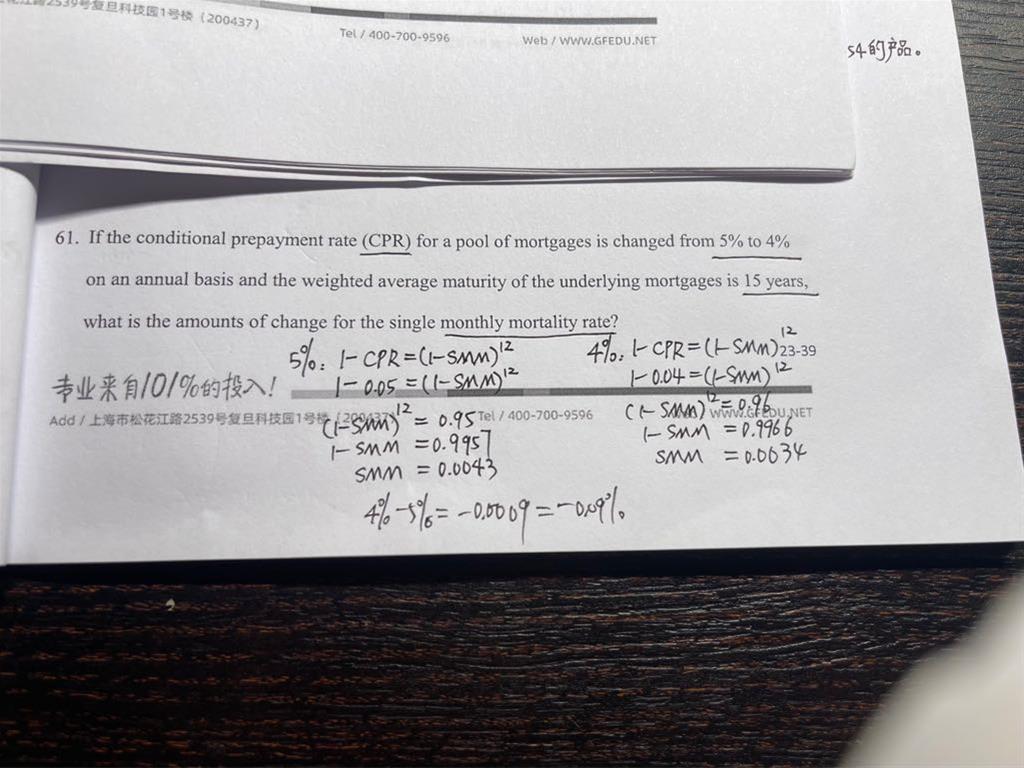 2539号复旦科技园1号楼（200437）
Tel / 400-700-9596
Web / WWW.GFEDU.NET
54的产品。
61. If the conditional prepayment rate (CPR) for a pool of mortgages is changed from 5% to 4%
on an annual basis and the weighted average maturity of the underlying mortgages is 15 years,
what is the amounts of change for the single monthly mortality rate?
5%: 1-CPR=(1-SMM)^12
1-0.05=(1-SMM)^12
(1-SMM)^12=0.95
1-SMM=0.9957
SMM=0.0043
4%: 1-CPR=(1-SMM)^12
1-0.04=(1-SMM)^12
(1-SMM)^12=0.96
1-SMM=0.9966
SMM=0.0034
4%-5%=-0.0009=-0.09%
23-39
专业来自101%的投入!
Add / 上海市松花江路2539号复旦科技园1号楼（200437）
Tel / 400-700-9596
WWW.GFEDU.NET